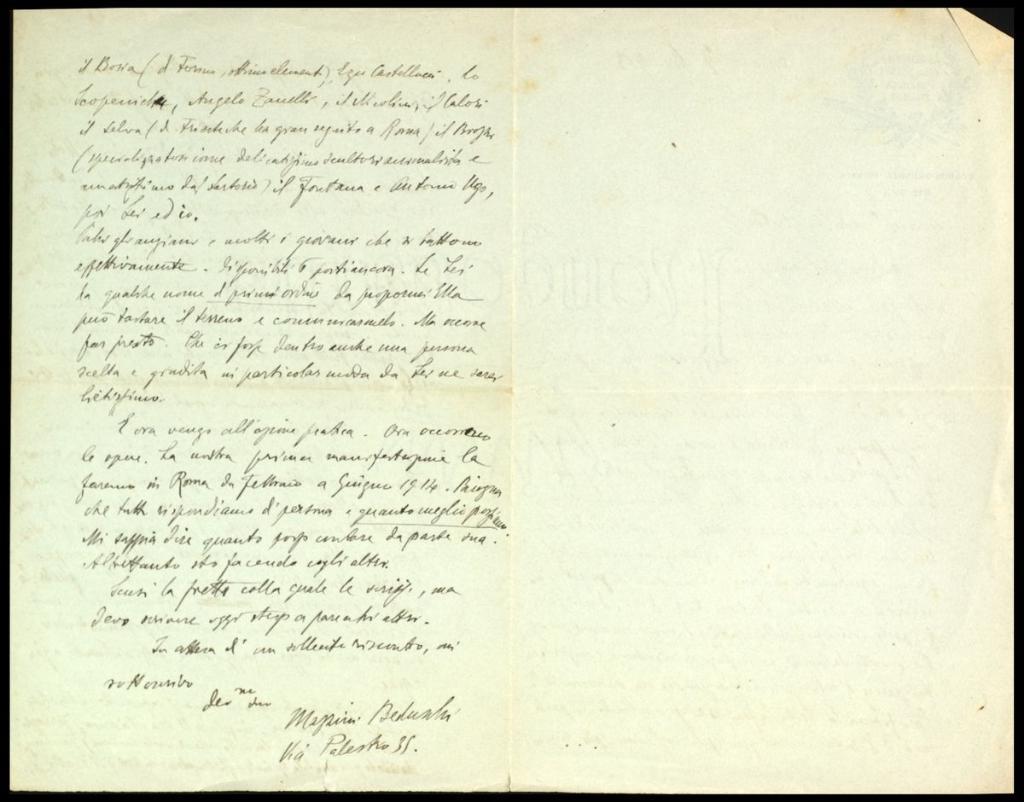 il Bosia (di Torino, ottimi elementi), Ezio Castellucci, lo
Scopenich, Angelo Zanelli, il Nicolini, il Calori
il Selva (di Trieste che ha gran seguito a Roma) il Brozzi
(specializzatosi come delicatissimo scultore animalista e
amatissimo dal Sartorio) il Fontana e Antonio Ugo,
poi Lei ed io.
gli anziani e molti i giovani che si battono
effettivamente. Disponibili 6 posti ancora. Se Lei
ha qualche nome di primo ordine da propormi Ella
può tastare il terreno e comunicarmelo. Ma occorre
far presto. Che ci fosse dentro anche una persona
scelta e gradita in particolar modo da Lei ne sarei
lietissimo.
E ora vengo all'azione pratica. Ora occorrono
le opere. La nostra prima manifestazione la
faremo in Roma da Febbraio a Giugno 1914. Bisogna
che tutti rispondiamo di persona e quanto meglio possiamo
Mi sappia dire quanto posso contare da parte sua.
Altrettanto sto facendo cogli altri.
Scusi la fretta colla quale le scrissi, ma
devo scrivere oggi stesso a parecchi altri.
In attesa d'un sollecito riscontro, mi
sottoscrivo
dev mo suo
Via Palestro 35.